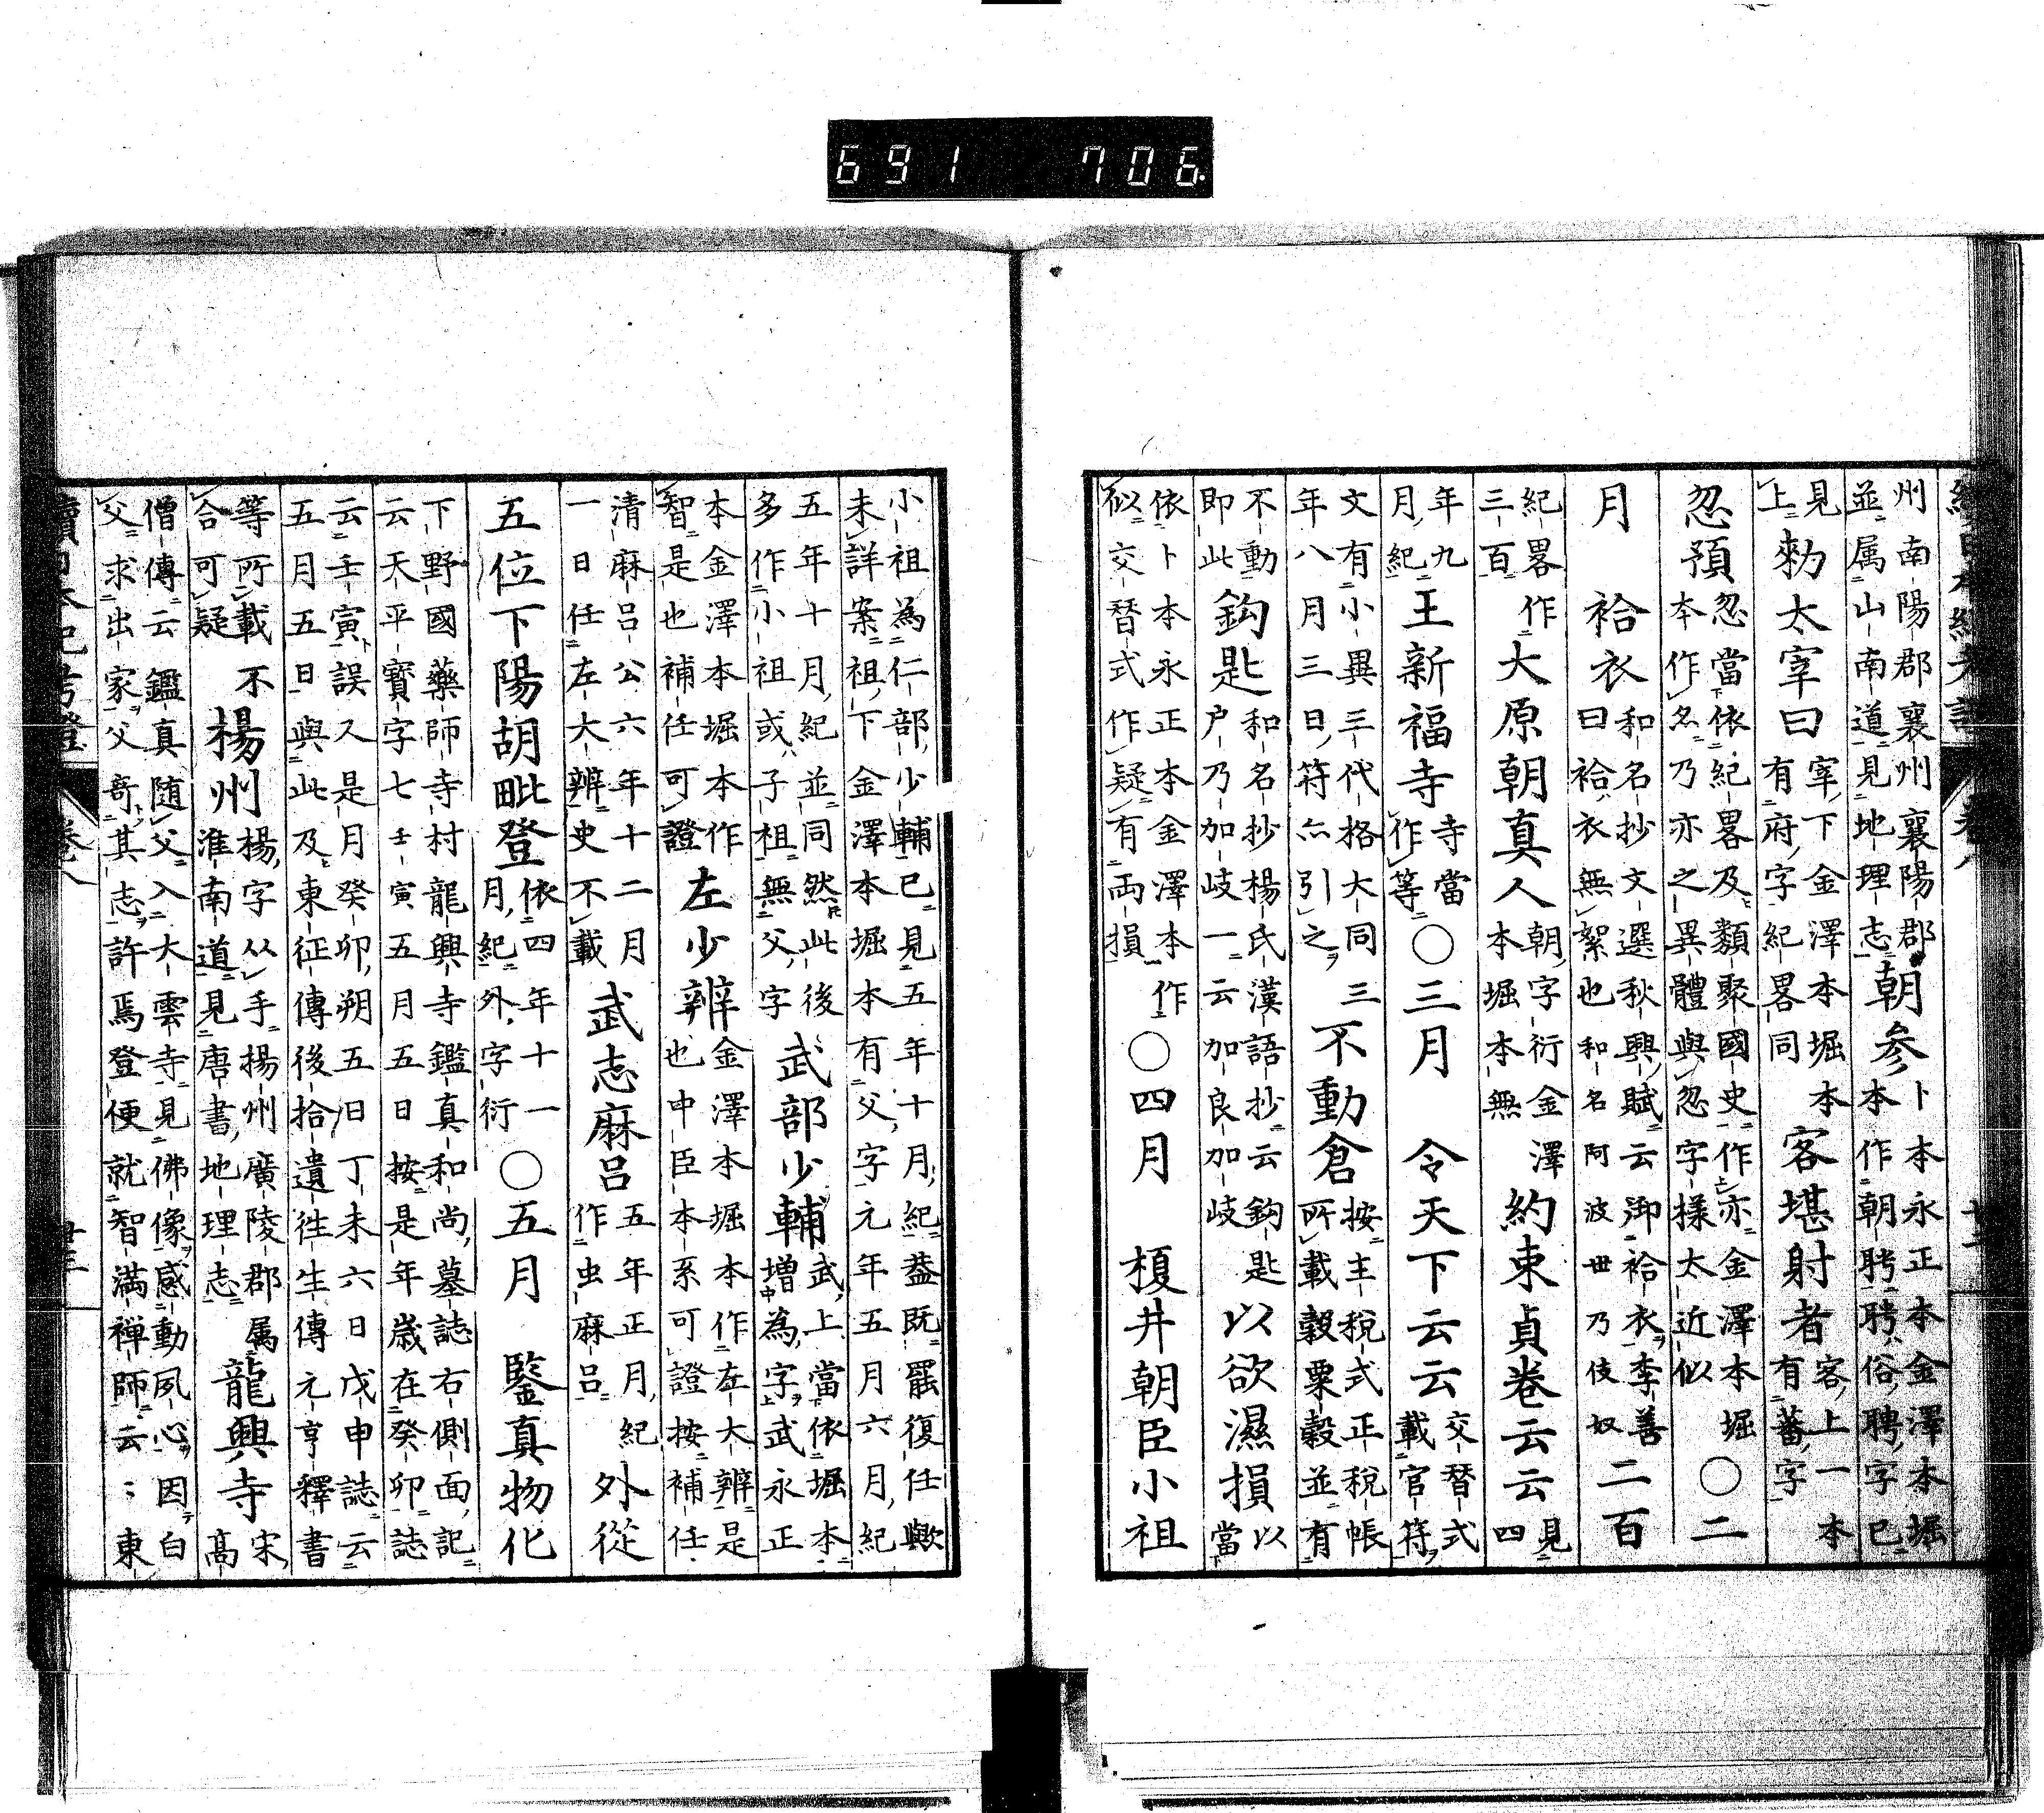 691 706.
州南陽郡襄州襄陽郡
並属山南道見地理志朝参卜本永正本金澤本堀
本作朝聘聘俗聘字已
見
上勑太宰曰宰下金澤本堀本
有府字紀畧同客堪射者客上一本
有蕃字
忍預忽當依紀畧及類聚國史作亦金澤本堀
本作名乃亦之異體與忽字様太近似〇二
月 袷衣和名抄文選秋興賦云御袷衣李善
曰袷衣無絮也和名阿波世乃伎奴二百
紀畧作
三百大原朝真人朝字衍金澤
本堀本無約束貞巻云云見
四
年九
月紀王新福寺寺當
作等〇三月 令天下云云交替式
載官符
文有小異三代格大同三
年八月三日符亦引之不動倉按主税式正税帳
所載穀粟穀並有
不動
即此鈎匙和名抄楊氏漢語抄云鈎匙
户乃加岐一云加良加岐以欲濕損以
當
依卜本永正本金澤本作
似交替式作疑有両損〇四月 榎井朝臣小祖
小祖為仁部少輔已見五年十月紀葢既罷復任歟
未詳案祖下金澤本堀本有父字元年五月六月紀
五年十月紀並同然此後
多作小祖或子祖無父字武部少輔武上當依堀本
増為字武永正
本金澤本堀本作
智是也補任可證左少辨金澤本堀本作左大辨是
也中臣本系可證按補任
清麻吕公六年十二月
一日任左大辨史不載武志麻吕五年正月紀
作虫麻吕外從
五位下陽胡毗登依四年十一
月紀外字衍〇五月 鑒真物化
下野國藥師寺村龍興寺鑑真和尚墓誌右側面記
云天平寳字七壬寅五月五日按是年歳在癸卯誌
云壬寅誤又是月癸卯朔五日丁未六日戊申誌云
五月五日與此及東征傳後拾遺往生傳元亨釋書
等所載不
合可疑楊州楊字从手揚州廣陵郡属
淮南道見唐書地理志龍興寺宋
高
僧傳云鑑真随父入大雲寺見佛像感動夙心因白
父求出家父奇其志許焉登便就智満禅師云〻東